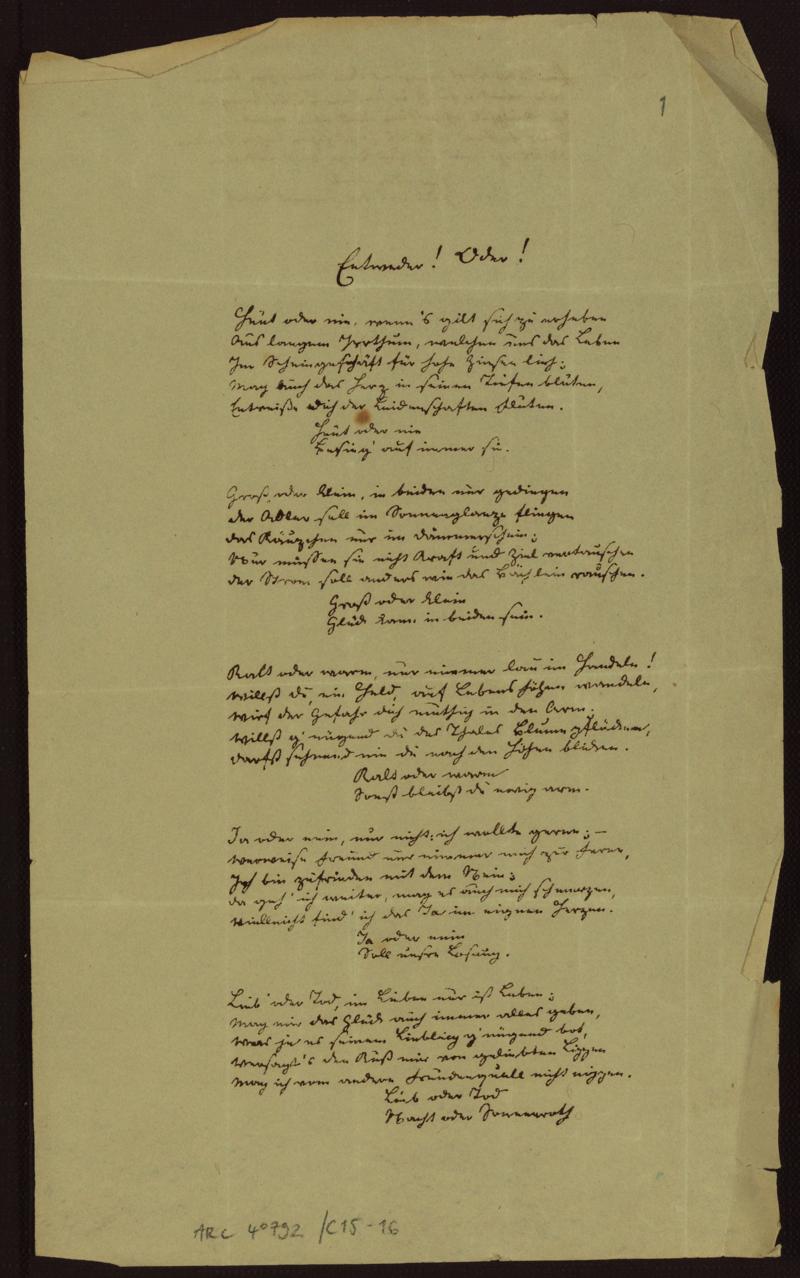 1
Entweder! Oder!
Heut oder nie, wenn's gilt sich zu erheben
Aus langem Irrthum, welchen uns das Leben
Im Scheingeschäft für hohe Zinsen lieh;
Mag auch das Herz in seinen Tiefen bluten,
Entreiße dich der Leidenschaften Fluten.
Heut oder nie
Besieg' auf immer sie.
Groß oder klein, in beiden nur gediegen
der Adler soll im Sonnenglanze fliegen
das Käuzchen nur im Dämmerschein;
Nur müssen sie nicht Kraft und Ziel vertauschen
der Strom soll anders wie das Bächlein rauschen.
Groß oder klein
Glück kann in beiden sein.
Kalt oder warm, nur nimmer lau im Handeln!
willst du, ein Held, auf Lebens Höhen wandeln,
wirf der Gefahr dich muthig in den Arm.
willst g'nügend du des Thales Blume pflücken,
darfst sehnend nie du nach den Höhen blicken.
Kalt oder warm
Sonst bleibst du ewig arm.
Ja oder nein, nur nicht: ich wollte gerne; –
verweise Freund nur nimmer mich zur Ferne,
Ich bin zufrieden mit dem Nein;
da geh' ich weiter, mag es auch mich schmerzen,
vielleicht find' ich das Ja im eignen Herzen.
Ja oder nein
Soll unsre Losung.
Lieb' oder Tod, im Lieben nur ist Leben;
Mag mir das Glück auch immer alles geben,
was je es seinem Liebling g'nügend bot,
versagt's den Kuß mir von geliebten Lippen
Mag ich vom andern Freudenquell nicht nippen.
Lieb oder Tod
Nacht oder Sonnenroth
ARC 4° 792 /C15-16